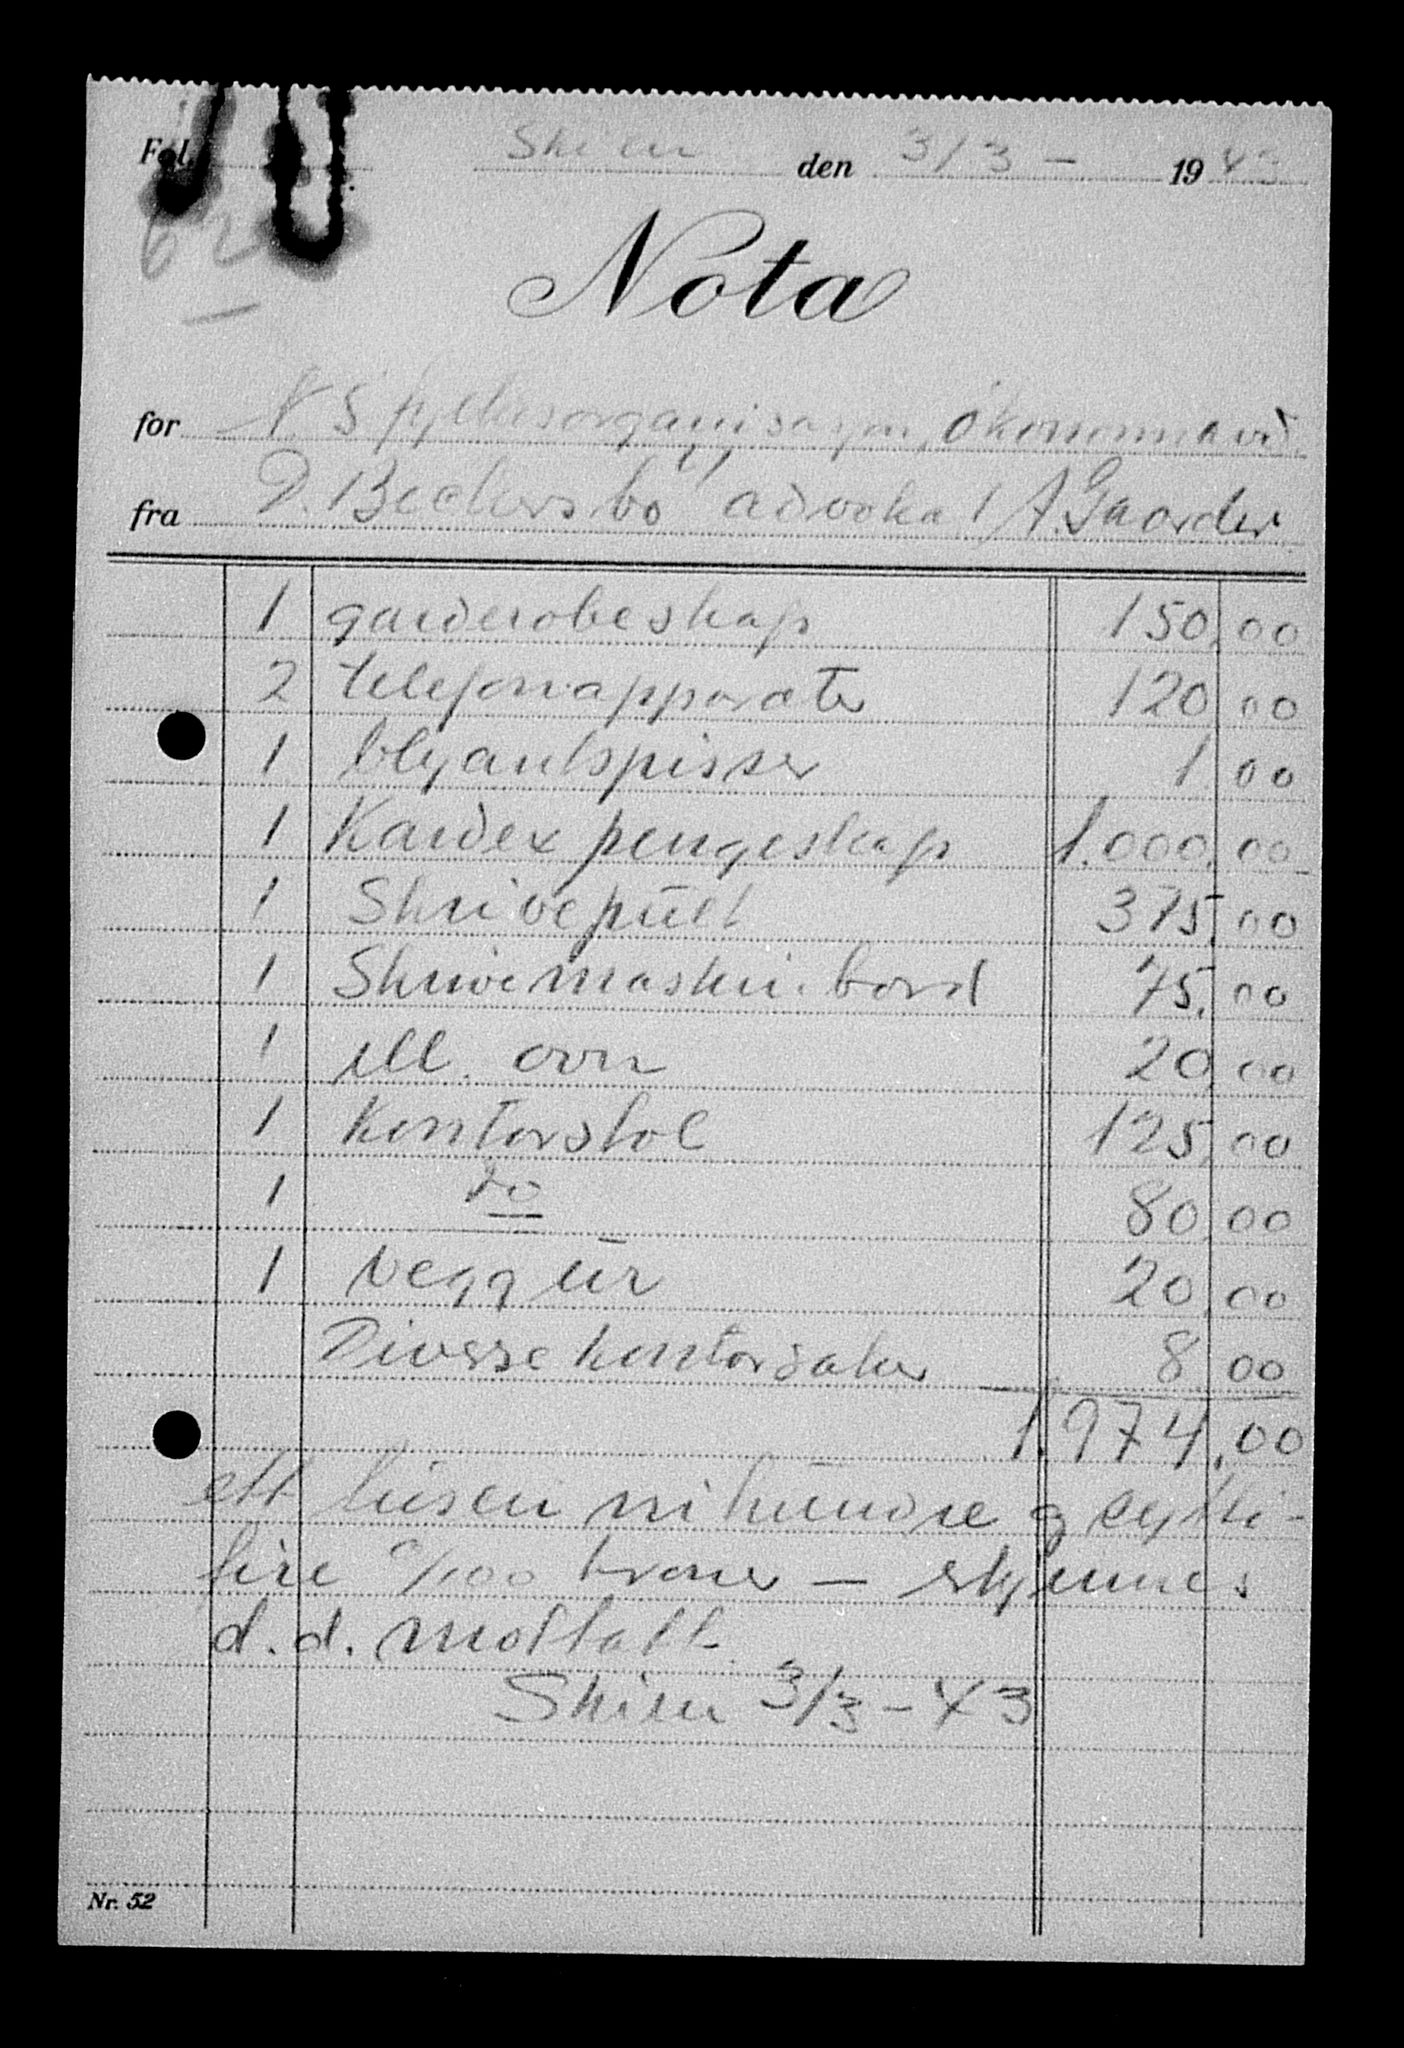 Fol. Skien den 3/3 - 1943
62
Nota
for N S fylkesorganisasjon, Økonomiavd.
fra D. Beckers bo v/ advokat A. Gaarder
1 garderobeskap 150,00
2 telefonapparater 120,00
1 blyantspisser 1 00
1 Kardex pengeskap 1.000,00
1 Skrivepult 375,00
1 Skrivemaskin.bord 75,00
1 ell. ovn 20,00
1 Kontorstol 125,00
1 do 80,00
1 veggur 20,00
Diverse kontorsaker 8 00
1.974,00
ett tusen nihundre og sytti-
fire 0/100 kroner — erkjennes
d.d. mottatt.
Skien 3/3-43
Nr. 52